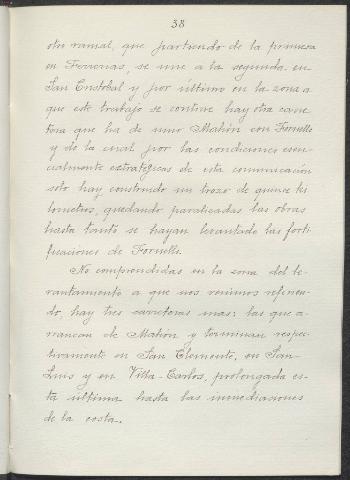 38
otro ramal, que partiendo de la primera
en Ferrerias, se une a la segunda en
San Cristobal y por último en la zona a
que este trabajo se contrae hay otra carre
tera que ha de unir Mahón con Fornells
y de la cual por las condiciones esen-
cialmente estratégicas de esta comunicación
solo hay construido un trozo de quince ki
lometros, quedando paralizadas las obras
hasta tanto se hayan levantado las forti-
ficaciones de Fornells.
No comprendidas en la zona del le-
vantamiento a que nos venimos refirien-
do, hay tres carreteras mas: las que a-
rrancan de Mahón y terminan respec-
tivamente en San Clemente, en San
Luis y en Villa-Carlos, prolongada es-
ta última hasta las inmediaciones
de la costa.